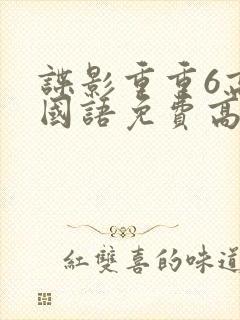 諜影重重6
國語免費高
紅雙喜的味道